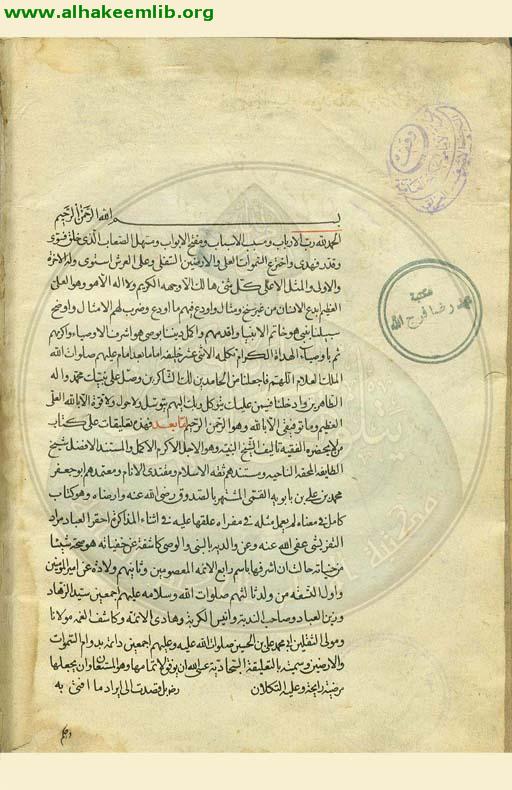 www.alhakeemlib.org
بسم الله الرحمن الرحيم
الحمد لله رب الارباب ومسبب الاسباب ومفتح الابواب ومسهل الصعاب الذى خلق فسوى
وقدر فهدى واخترع السموات العلى والارضين السفلى وعلى العرش استوى وله الاخرة
والاولى والمثل الاعلى كل شئ هالك الا وجهه الكريم ولا اله الا هو وهو العلى
العظيم ابدع الانسان من غير سنخ ومثال واودع فيهم ما اودع وضرب لهم الامثال واوضح
سبيلنا بنبى هو خاتم الانبياء واقدمهم واكمل ديننا بوصى هو اشرف الاوصياء واكرمهم
ثم باوصيائه الهداة الكرام تكملة الاثنى عشر خليفة اماما بعد امام عليهم صلوات الله
الملك العلام اللهم فاجعلنا من الحامدين لك الشاكرين وصل على نبيك محمد واله
الطاهرين وادخلنا فيمن عليك يتوكل وبك اليهم يتوسل ولا حول ولا قوة الا بالله العلى
العظيم وما توفيقى الا بالله وهو الرحمن الرحيم اما بعد فهذه تعليقات على كتاب
من لا يحضره الفقيه تاليف الشيخ النبيه وهو الاجل الاكرم الاكمل والمستند الافضل شيخ
الطايفة المحقة الناجيه ومستندهم ثقة الاسلام ومقتدى الانام ومعتمدهم ابو جعفر
محمد بن على بن بابويه القمى المشتهر بالصدوق رضى الله عنه وارضاه وهو كتاب
كامل فى معناه لم يعمل مثله فى مغزاه علقها عليه فى اثناء المذاكرة احقر العباد مراد
التفرشى عفى الله عنه وعن والديه بالنبى والوصى كاشفة عن خفياته موضحة شيئا
من خبياته حاملت ان اشرفها باسم رابع الائمة المعصومين وثانيهم ولادة على امير المؤمنين
واول التسعة من ولد ثالثهم صلوات الله وسلامه عليهم اجمعين سيد الزهاد
وزين العباد وصاحب الندبة وانيس الكربة وهادى الامة وكاشف الغمه مولانا
ومولى الثقلين ابى محمد على بن الحسين صلوات الله عليه وعليهم اجمعين دائمة بدوام السموات
والارضين وسميته بالتعليقة السجادية عسى الله ان يوفق لاتمامها وهو المستعان وان يجعلها
مرضية رابحة وعليه التكلان رض وقصدت الى ايراد ما افتى به
مكتبة
محمد رضا فرج الله
وقف